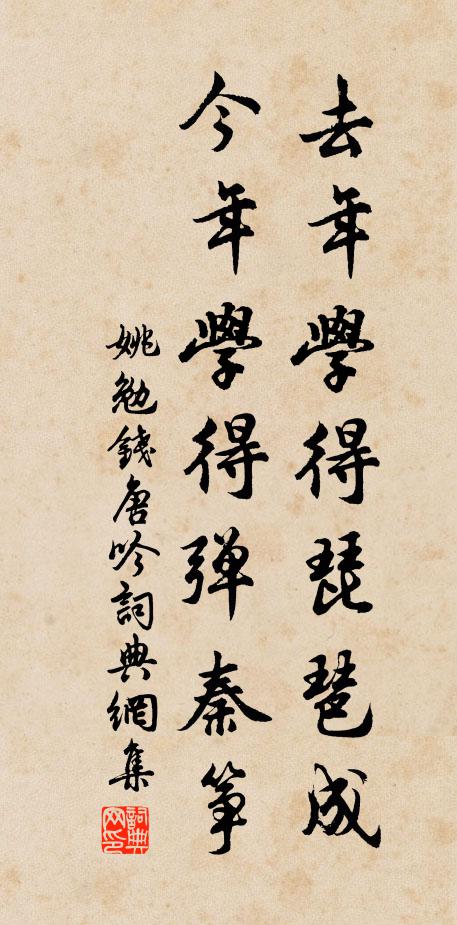 去年學得琵琶成
今年學得弹秦筝
姚勉錢唐吟詞典網集
詞典网印